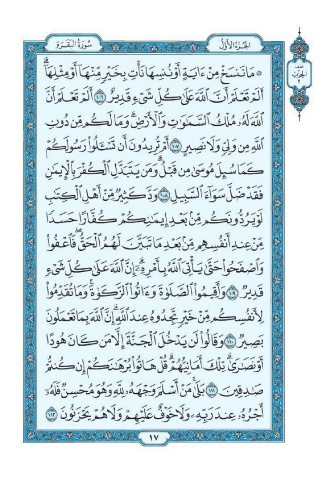 الجزء الأول
سورة البقرة
نصف
الحزب
۞ مَا نَنسَخْ مِنْ ءَايَةٍ أَوْ نُنسِهَا نَأْتِ بِخَيْرٍ مِّنْهَا أَوْ مِثْلِهَآ ۗ
أَلَمْ تَعْلَمْ أَنَّ ٱللَّهَ عَلَىٰ كُلِّ شَىْءٍ قَدِيرٌ ١٠٦ أَلَمْ تَعْلَمْ أَنَّ
ٱللَّهَ لَهُۥ مُلْكُ ٱلسَّمَٰوَٰتِ وَٱلْأَرْضِ ۗ وَمَا لَكُم مِّن دُونِ
ٱللَّهِ مِن وَلِىٍّ وَلَا نَصِيرٍ ١٠٧ أَمْ تُرِيدُونَ أَن تَسْـَٔلُوا۟ رَسُولَكُمْ
كَمَا سُئِلَ مُوسَىٰ مِن قَبْلُ ۗ وَمَن يَتَبَدَّلِ ٱلْكُفْرَ بِٱلْإِيمَٰنِ
فَقَدْ ضَلَّ سَوَآءَ ٱلسَّبِيلِ ١٠٨ وَدَّ كَثِيرٌ مِّنْ أَهْلِ ٱلْكِتَٰبِ
لَوْ يَرُدُّونَكُم مِّنۢ بَعْدِ إِيمَٰنِكُمْ كُفَّارًا حَسَدًا
مِّنْ عِندِ أَنفُسِهِم مِّنۢ بَعْدِ مَا تَبَيَّنَ لَهُمُ ٱلْحَقُّ ۖ فَٱعْفُوا۟
وَٱصْفَحُوا۟ حَتَّىٰ يَأْتِىَ ٱللَّهُ بِأَمْرِهِۦٓ ۗ إِنَّ ٱللَّهَ عَلَىٰ كُلِّ شَىْءٍ
قَدِيرٌ ١٠٩ وَأَقِيمُوا۟ ٱلصَّلَوٰةَ وَءَاتُوا۟ ٱلزَّكَوٰةَ ۚ وَمَا تُقَدِّمُوا۟
لِأَنفُسِكُم مِّنْ خَيْرٍ تَجِدُوهُ عِندَ ٱللَّهِ ۗ إِنَّ ٱللَّهَ بِمَا تَعْمَلُونَ
بَصِيرٌ ١١٠ وَقَالُوا۟ لَن يَدْخُلَ ٱلْجَنَّةَ إِلَّا مَن كَانَ هُودًا
أَوْ نَصَٰرَىٰ ۗ تِلْكَ أَمَانِيُّهُمْ ۗ قُلْ هَاتُوا۟ بُرْهَٰنَكُمْ إِن كُنتُمْ
صَٰدِقِينَ ١١١ بَلَىٰ مَنْ أَسْلَمَ وَجْهَهُۥ لِلَّهِ وَهُوَ مُحْسِنٌ فَلَهُۥٓ
أَجْرُهُۥ عِندَ رَبِّهِۦ وَلَا خَوْفٌ عَلَيْهِمْ وَلَا هُمْ يَحْزَنُونَ ١١٢
١٧